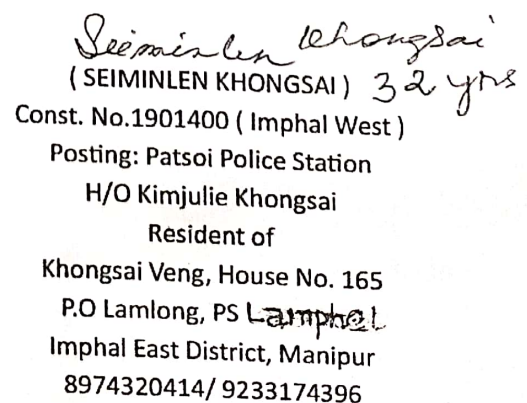 Seiminlen Khongsai
(SEIMINLEN KHONGSAI) 32 yrs
Const. No.1901400 ( Imphal West )
Posting: Patsoi Police Station
H/O Kimjulie Khongsai
Resident of
Khongsai Veng, House No. 165
P.O Lamlong, PS Lamphel
Imphal East District, Manipur
8974320414/ 9233174396